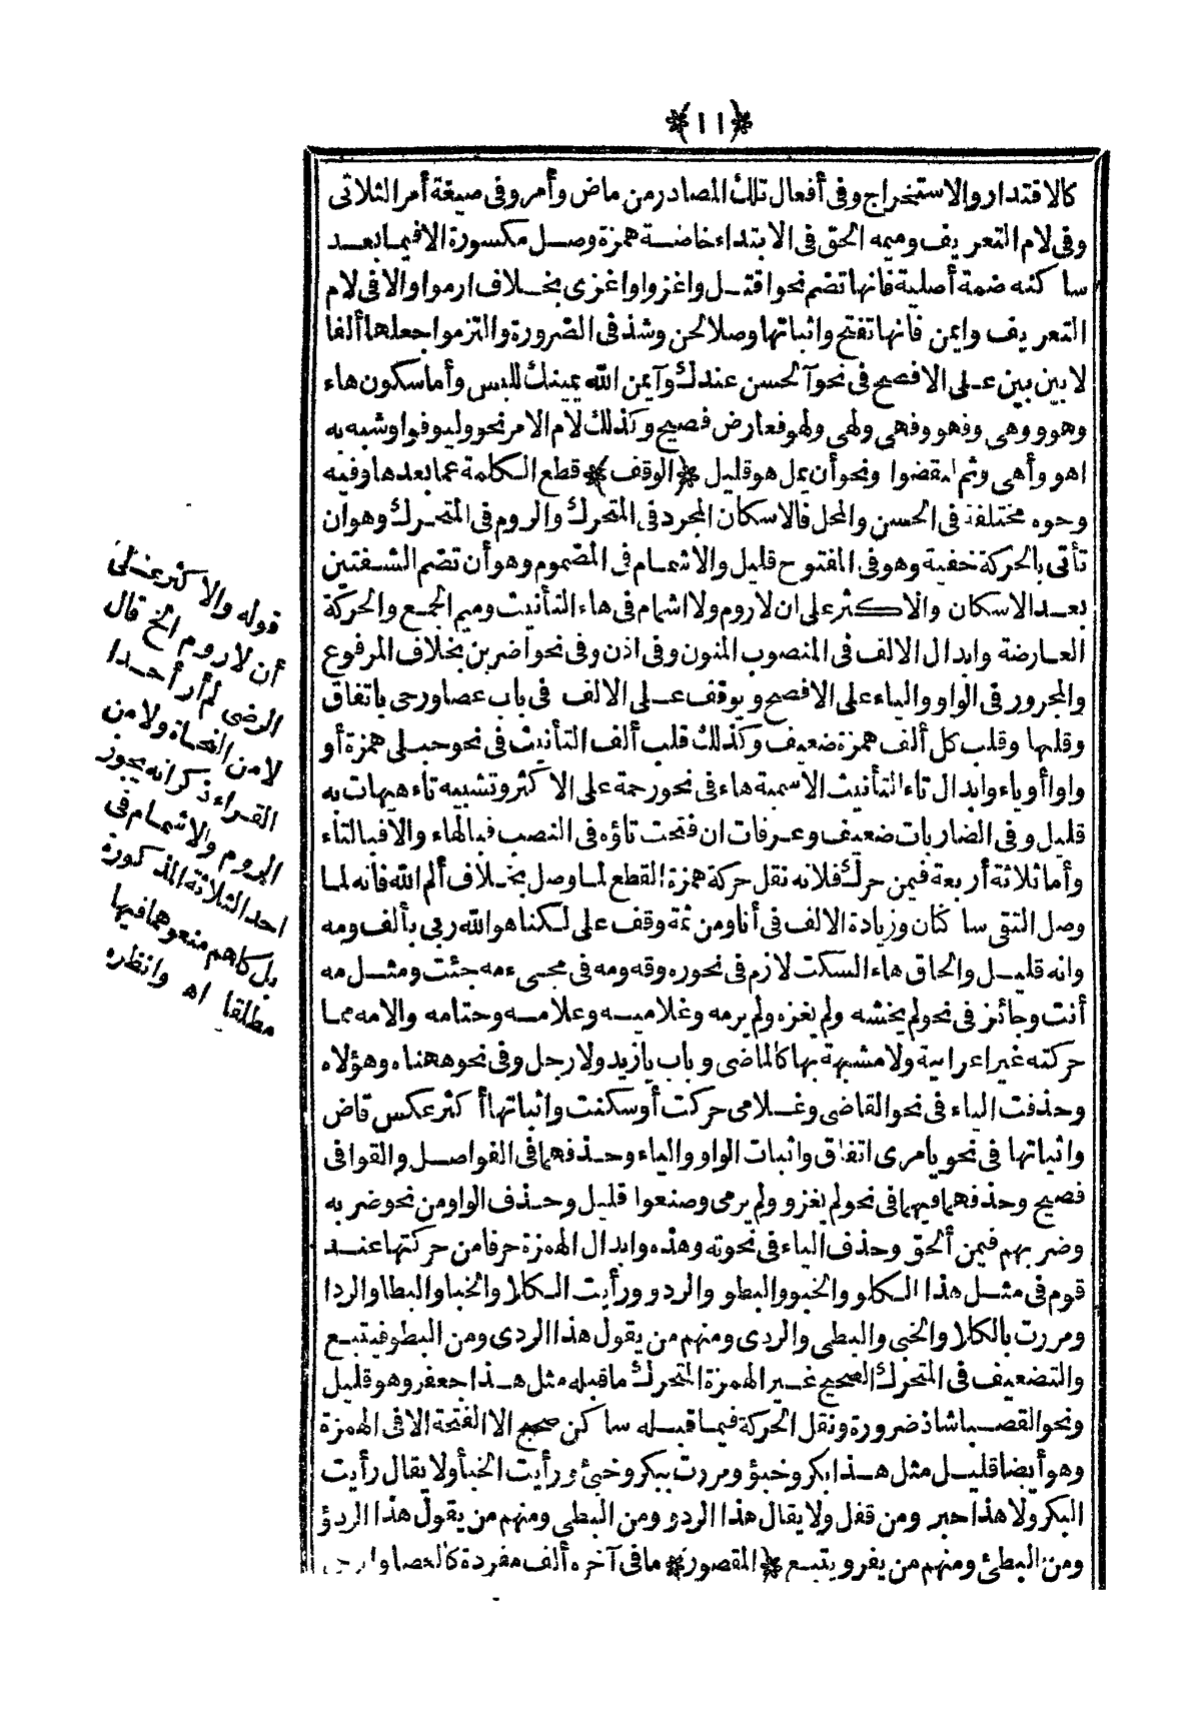 ﴿١١﴾
كالاقتدار والاستخراج وفى أفعال تلك المصادر من ماض وأمر وفى صيغة أمر الثلاثى
وفى لام التعريف وميمه الحق فى الابتداء خاصة همزة وصل مكسورة الا فيما بعد
ساكنه ضمة أصلية فانها تضم نحو اقتل واغزوا واغزى بخلاف ارموا والا فى لام
التعريف وايمن فانها تفتح واثباتها وصلا لحن وشذ فى الضرورة والتزموا جعلها ألفا
لا بين بين على الافصح فى نحو آلحسن عندك وآيمن الله يمينك للبس وأما سكون هاء
وهو وهى وفهو وفهى ولهى ولهو فعارض فصيح وكذلك لام الامر نحو وليوفوا وشبه به
اهو وأهى وثم ليقضوا ونحو أن يمل هو قليل ﴿الوقف﴾ قطع الكلمة عما بعدها وفيه
وجوه مختلفة فى الحسن والمحل فالاسكان المجرد فى المتحرك والروم فى المتحرك وهو ان
تأتى بالحركة خفية وهو فى المفتوح قليل والاشمام فى المضموم وهو أن تضم الشفتين
بعد الاسكان والاكثر على ان لا روم ولا اشمام فى هاء التأنيث وميم الجمع والحركة
العارضة وابدال الالف فى المنصوب المنون وفى اذن وفى نحو اضربن بخلاف المرفوع
والمجرور فى الواو والياء على الافصح ويوقف على الالف فى باب عصا ورحى باتفاق
وقلبها وقلب كل ألف همزة ضعيف وكذلك قلب ألف التأنيث فى نحو حبلى همزة أو
واوا أو ياء وابدال تاء التأنيث الاسمية هاء فى نحو رحمة على الاكثر وتشبيه تاء هيهات به
قليل وفى الضاربات ضعيف وعرفات ان فتحت تاؤه فى النصب فبالهاء والا فبالتاء
وأما ثلاثة أربعة فيمن حرك فلانه نقل حركة همزة القطع لما وصل بخلاف ألم الله فانه لما
وصل التقى ساكنان وزيادة الالف فى أنا ومن ثمة وقف على لكنا هو الله ربى بألف ومه
وانه قليل والحاق هاء السكت لازم فى نحو ره وقه ومه فى مجىء مه جئت ومثل مه
أنت وجائز فى نحو لم يخشه ولم يغزه ولم يرمه وغلاميه وعلامه وحتامه والامه مما
حركته غير اعرابية ولا مشبهة بها كالماضى وباب يا زيد ولا رجل وفى نحو ههناه وهؤلاه
وحذفت الياء فى نحو القاضى وغلامى حركت أو سكنت واثباتها أكثر عكس قاض
واثباتها فى نحو يامرى اتفاق واثبات الواو والياء وحذفهما فى الفواصل والقوافى
فصيح وحذفهما فيهما فى نحو لم يغزو ولم يرمى وصنعوا قليل وحذف الواو من نحو ضربه
وضربهم فيمن ألحق وحذف الياء فى نحو ته وهذه وابدال الهمزة حرفا من حركتها عند
قوم فى مثل هذا الكلو والخبو والبطو والردو ورأيت الكلا والخبا والبطا والردا
ومررت بالكلا والخبى والبطى والردى ومنهم من يقول هذا الردى ومن البطو فيتبع
والتضعيف فى المتحرك الصحيح غير الهمزة المتحرك ما قبله مثل هذا جعفر وهو قليل
ونحو القصبا شاذ ضرورة ونقل الحركة فيما قبله ساكن صحيح الا الفتحة الا فى الهمزة
وهو أيضا قليل مثل هذا بكر وخبؤ ومررت ببكر وخبئ ورأيت الخبأ ولا يقال رأيت
البكر ولا هذا حبر ومن قفل ولا يقال هذا الردؤ ومن البطى ومنهم من يقول هذا الردؤ
ومن البطئ ومنهم من يفر ويتبع ﴿المقصور﴾ ما فى آخره ألف مفردة كالعصا والرحى
قوله والاكثر على
أن لا روم الخ قال
الرضى لم أر أحدا
لا من النحاة ولا من
القراء ذكر انه يجوز
الروم والاشمام فى
احد الثلاثة المذكورة
بل كلهم منعوهما فيها
مطلقا اه وانظره